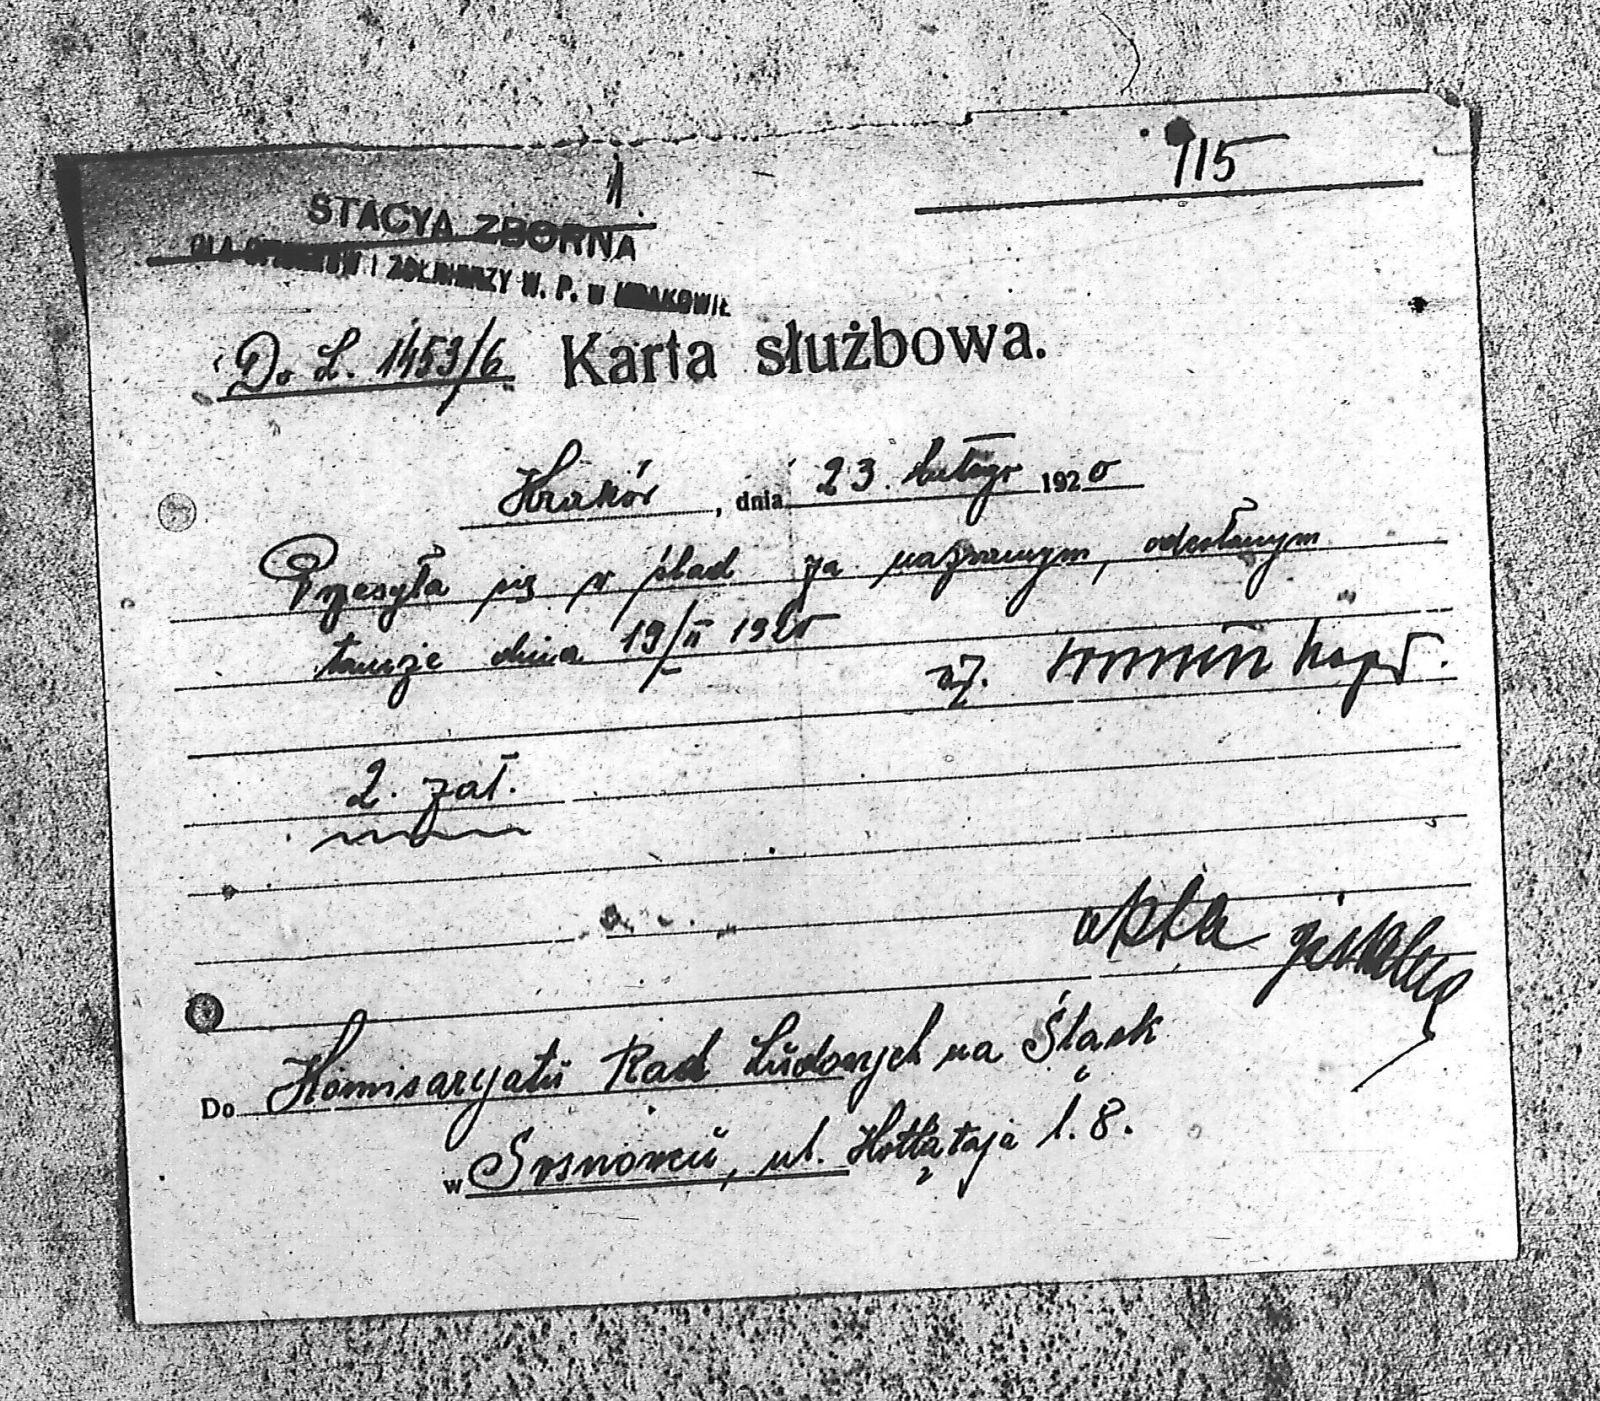 115
1
STACYA ZBORNA
DLA OFICERÓW I ŻOŁNIERZY W. P. W KRAKOWIE
Do L. 1453/6 Karta służbowa.
Kraków, dnia 23. lutego 1920
Przesyła się w ślad za nazwanym, odesłanym
tamże dnia 19/II 1920
kapt.
2. zał.
akta
Do Komisaryatu Rad Ludowych na Śląsk
w Sosnowcu, ul. Kołłątaja l. 8.